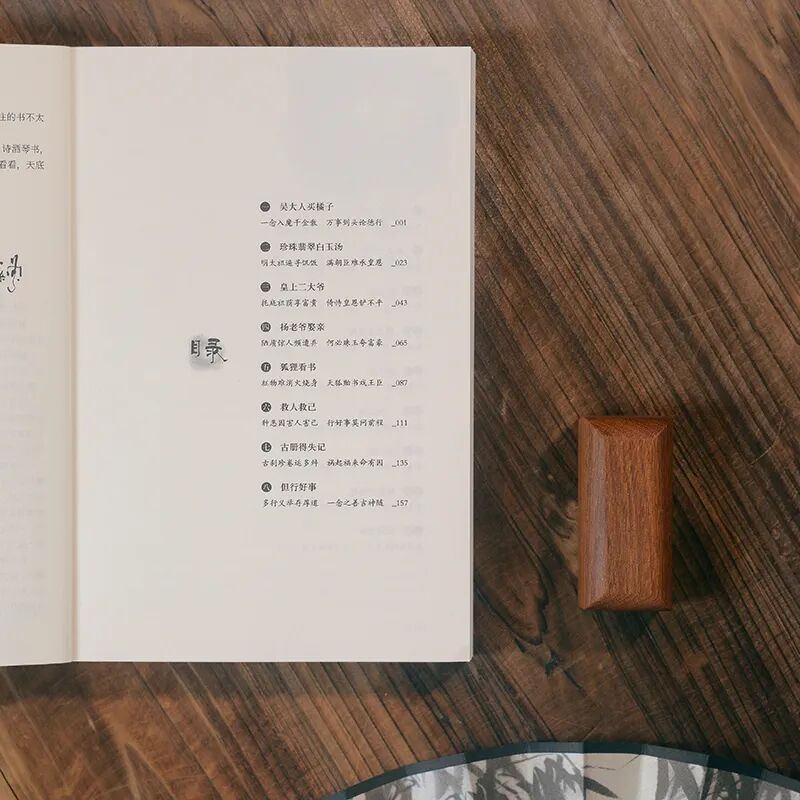 主的书不太
诗酒琴书,
看看,天底
目录
一 吴大人买橘子
一念入魔千金散 万事到头论德行 _001
二 珍珠翡翠白玉汤
明太祖逼寻饥饭 满朝臣难承皇恩 _023
三 皇上二大爷
托庇祖荫享富贵 倚恃皇恩铲不平 _043
四 杨老爷娶亲
陋质惊人频遭弃 何必珠玉夸富豪 _065
五 狐狸看书
红物难消火烧身 天狐贻书戏王臣 _087
六 救人救己
种恶因害人害己 行好事莫问前程 _111
七 古册得失记
古刹珍卷运多舛 祸起福来命有因 _135
八 但行好事
多行义举存厚道 一念之善吉神随 _157